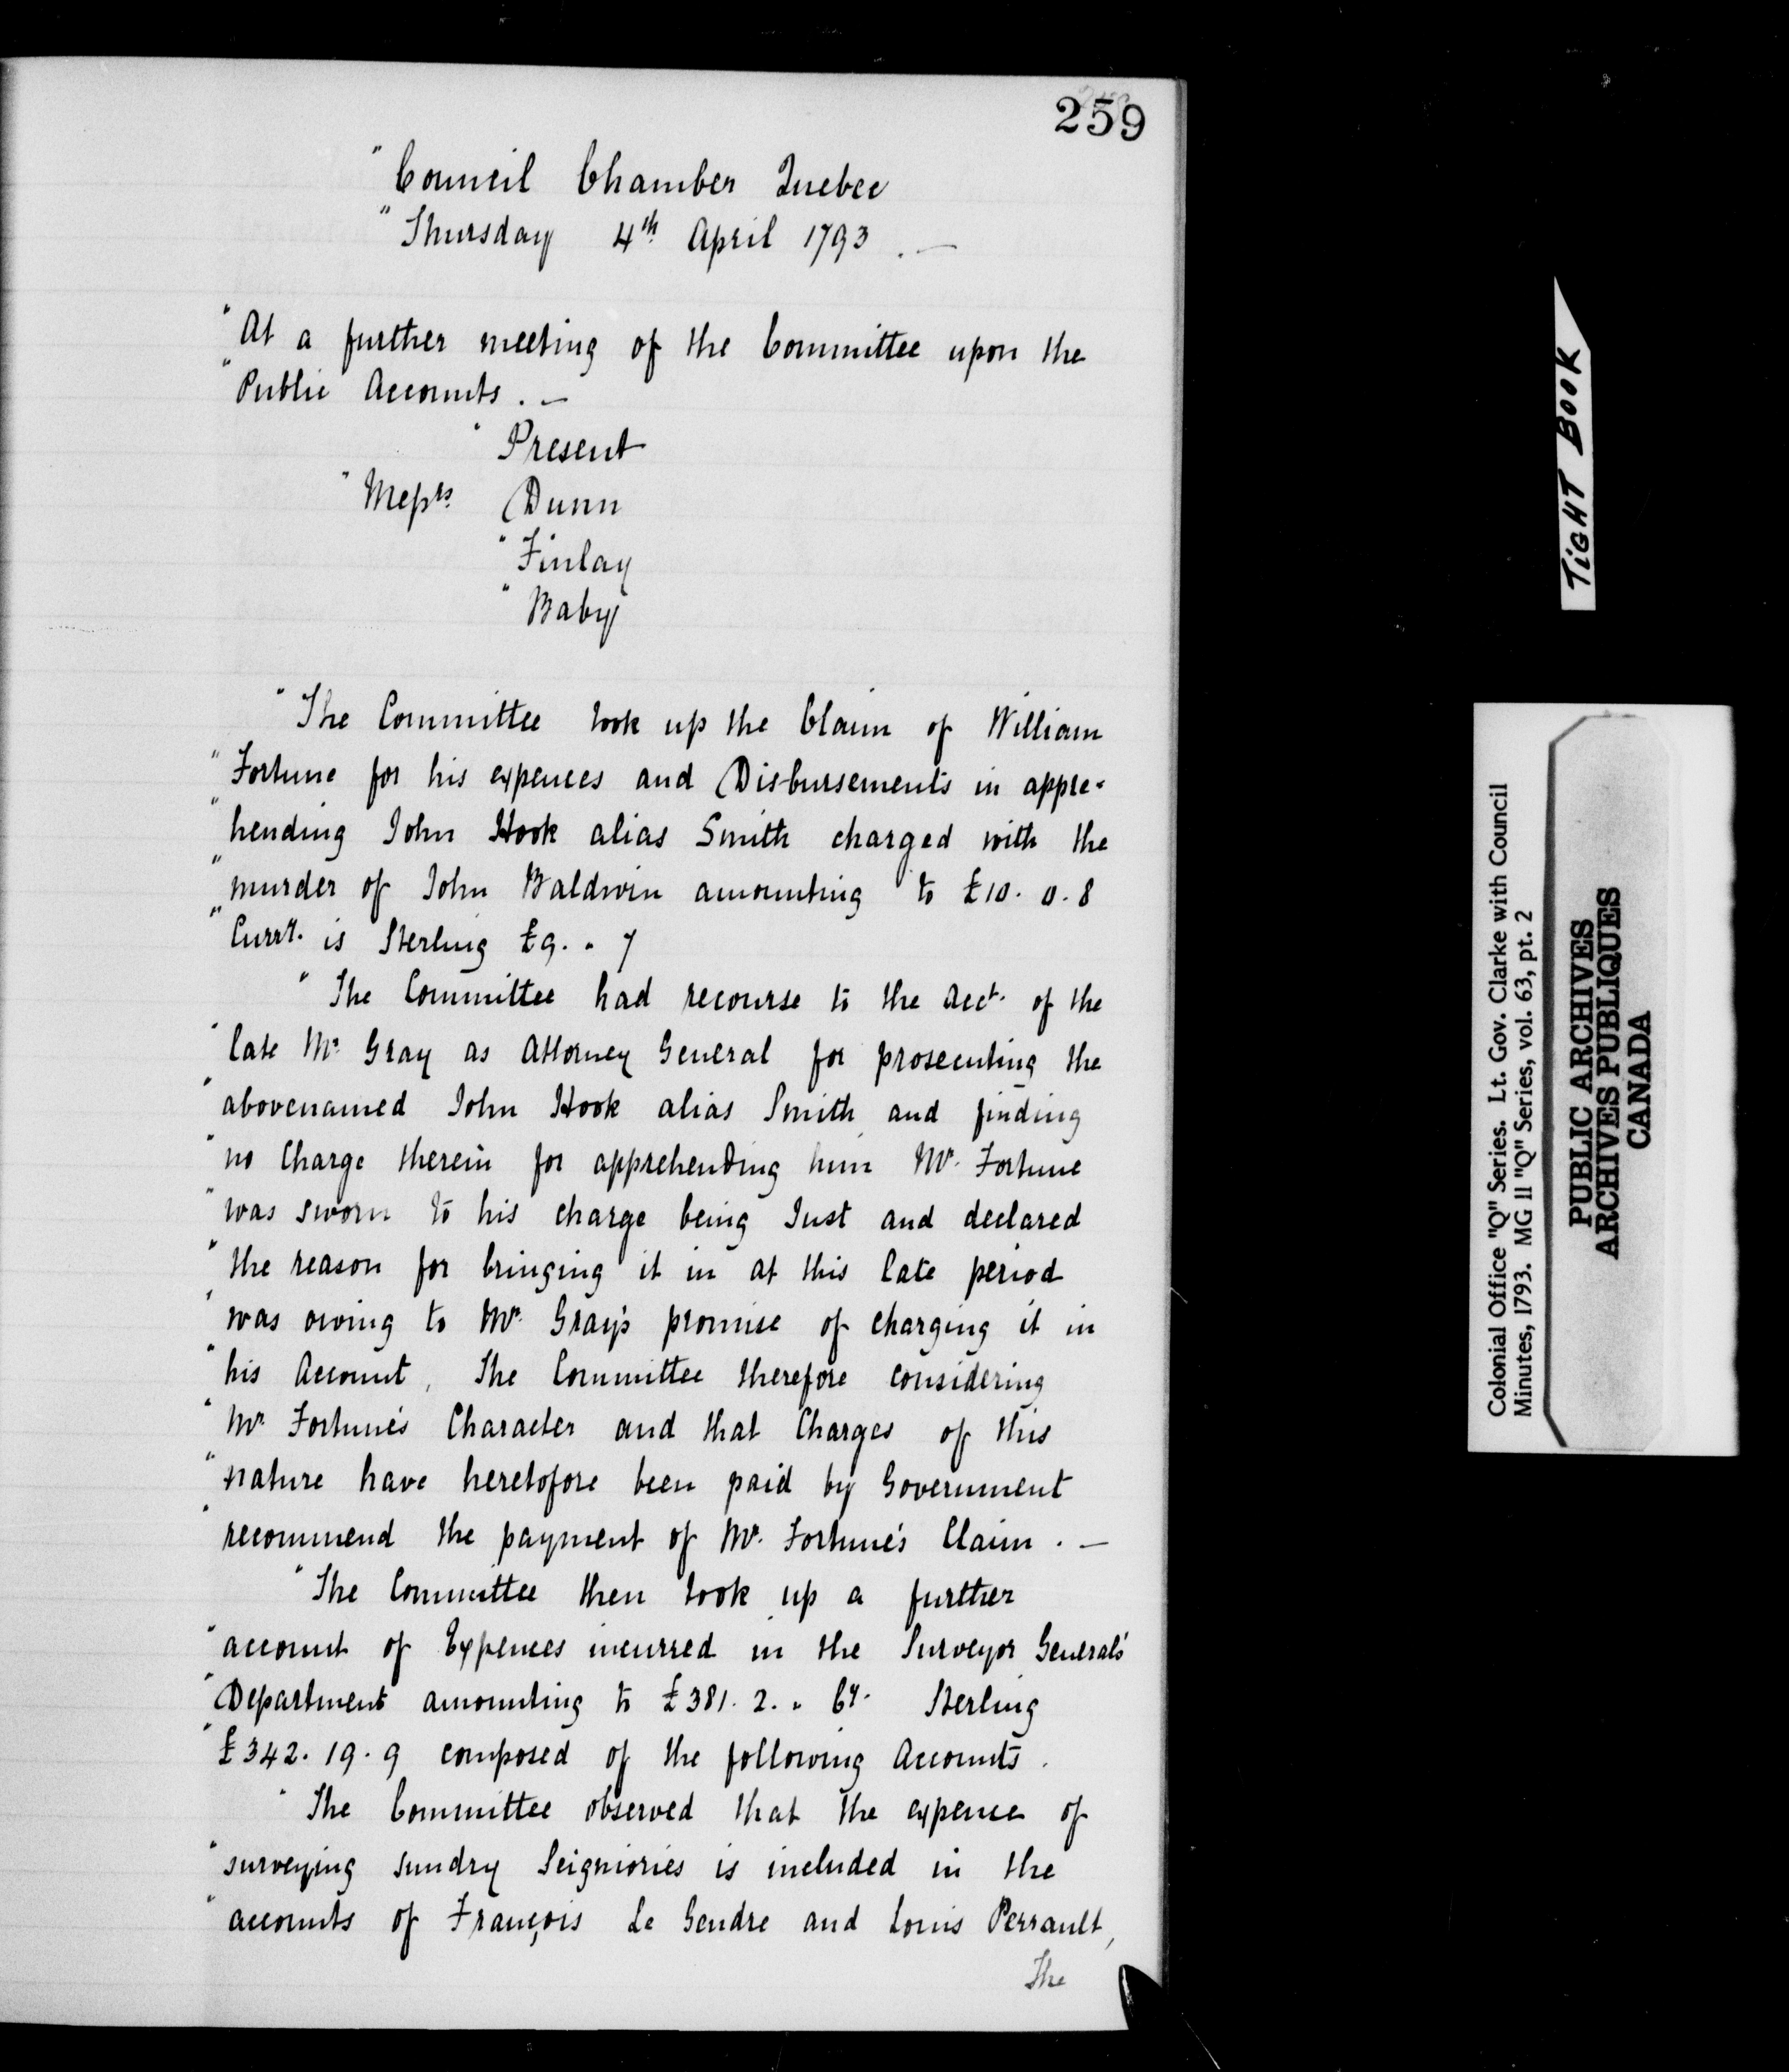 259
"Council Chamber Quebec
"Thursday 4th April 1793 . —
"At a further meeting of the Committee upon the
"Public Accounts . —
"Present
"Messrs Dunn
"Finlay
"Baby
"The Committee took up the Claim of William
"Fortune for his expences and Disbursements in appre-
"hending John Hook alias Smith charged with the
"murder of John Baldwin amounting to £10. 0. 8
"Curry. is Sterling £9. " 7
"The Committee had recourse to the acct. of the
"late Mr. Gray as Attorney General for prosecuting the
"abovenamed John Hook alias Smith and finding
"no Charge therein for apprehending him Mr. Fortune
"was sworn to his charge being Just and declared
"the reason for bringing it in at this late period
"was owing to Mr. Gray's promise of charging it in
"his Account, The Committee therefore considering
"Mr. Fortune's Character and that Charges of this
"nature have heretofore been paid by Government
"recommend the payment of Mr. Fortune's Claim . —
"The Committee then took up a further
"account of Expences incurred in the Surveyor General's
"Department amounting to £381. 2. " Cy. Sterling
"£342. 19. 9 composed of the following Accounts.
"The Committee observed that the expence of
"surveying sundry Seigniories is included in the
"accounts of François Le Gendre and Louis Perrault,
The
TIGHT BOOK
Colonial Office "Q" Series. Lt. Gov. Clarke with Council
Minutes, 1793. MG 11 "Q" Series, vol. 63, pt. 2
PUBLIC ARCHIVES
ARCHIVES PUBLIQUES
CANADA